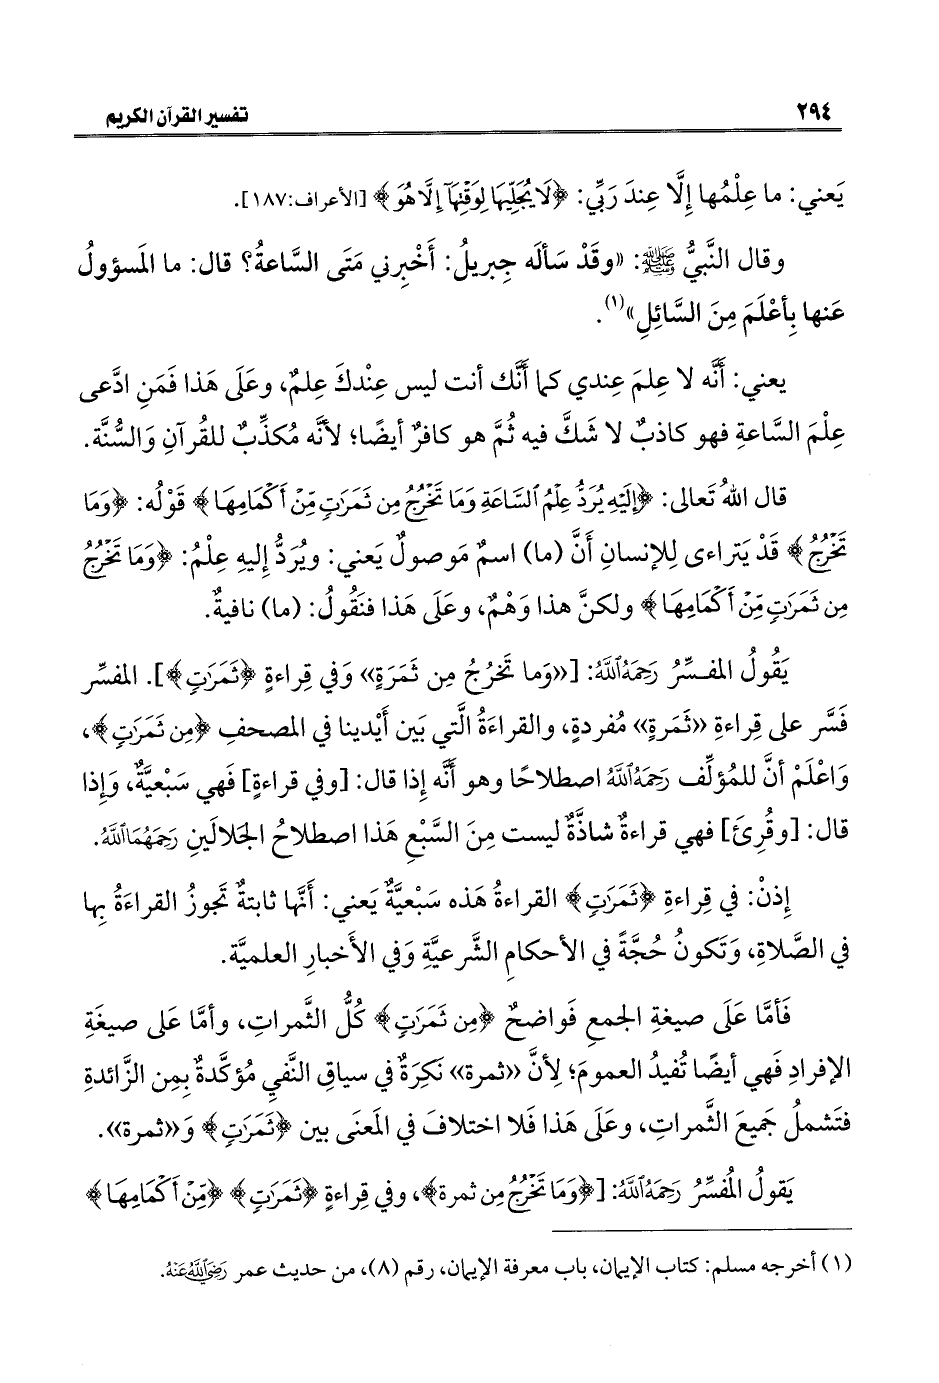 ٢٩٤
تفسير القرآن الكريم
يَعني: ما عِلْمُها إلَّا عِندَ رَبِّي: ﴿لَا يُجَلِّيهَا لِوَقْتِهَآ إِلَّا هُوَ﴾ [الأعراف:١٨٧].
وقال النَّبيُّ ﷺ: «وقَدْ سَألَه جِبريلُ: أَخْبِرني مَتَى السَّاعةُ؟ قال: ما المَسؤولُ
عَنها بِأعْلَمَ مِنَ السَّائِلِ»(١).
يعني: أنَّه لا عِلمَ عِندي كما أَنَّك أنت ليس عِنْدكَ عِلمٌ، وعَلَى هَذا فَمَنِ ادَّعى
عِلْمَ السَّاعةِ فهو كاذبٌ لا شَكَّ فيه ثُمَّ هو كافرٌ أيضًا؛ لأنَّه مُكذِّبٌ للقُرآنِ وَالسُّنَّة.
قال اللهُ تَعالى: ﴿إِلَيْهِ يُرَدُّ عِلْمُ ٱلسَّاعَةِ وَمَا تَخْرُجُ مِن ثَمَرَٰتٍ مِّنْ أَكْمَامِهَا﴾ قَوْلُه: ﴿وَمَا
تَخْرُجُ﴾ قَدْ يَتراءى لِلإنسانِ أَنَّ (ما) اسمٌ مَوصولٌ يَعني: ويُرَدُّ إليه عِلْمُ: ﴿وَمَا تَخْرُجُ
مِن ثَمَرَٰتٍ مِّنْ أَكْمَامِهَا﴾ ولكنَّ هذا وَهْمٌ، وعَلَى هَذا فنَقُولُ: (ما) نافيةٌ.
يَقُولُ المفـسِّرُ رَحِمَهُ ٱللَّهُ: [«وَما تَخْرُجُ مِن ثَمَرَةٍ» وَفي قِراءةٍ ﴿ثَمَرَٰتٍ﴾]. المفسِّر
فَسَّر على قِراءةِ «ثَمَرةٍ» مُفردةٍ، والقراءَةُ الَّتي بَين أيْدينا في المصحفِ ﴿مِن ثَمَرَٰتٍ﴾،
وَاعْلَمْ أنَّ للمُؤلِّف رَحِمَهُ ٱللَّهُ اصطلاحًا وهو أنَّه إذا قال: [وفي قراءةٍ] فَهي سَبْعيَّةٌ، وَإذا
قال: [وقُرِئَ] فهي قراءةٌ شاذَّةٌ ليست مِنَ السَّبْعِ هَذا اصطلاحُ الجَلالَينِ رَحِمَهُمَا ٱللَّهُ.
إذنْ: في قِراءةِ ﴿ثَمَرَٰتٍ﴾ القراءةُ هَذه سَبْعيَّةٌ يَعني: أَنَّها ثابتةٌ تَجوزُ القراءَةُ بِها
في الصَّلاةِ، وَتَكونُ حُجَّةً في الأحكامِ الشَّرعيَّةِ وَفي الأخبارِ العلميَّة.
فَأمَّا عَلَى صيغةِ الجمعِ فَواضحٌ ﴿مِن ثَمَرَٰتٍ﴾ كُلُّ الثَّمراتِ، وأمَّا عَلى صيغَةِ
الإفرادِ فَهي أيضًا تُفيدُ العمومَ؛ لِأنَّ «ثمرة» نَكِرَةٌ في سياقِ النَّفيِ مُؤكَّدةٌ بِمِن الزَّائدةِ
فتَشملُ جَميعَ الثَّمراتِ، وعَلَى هَذا فَلا اختلافَ في المَعنَى بين ﴿ثَمَرَٰتٍ﴾ وَ«ثمرة».
يَقولُ المُفسِّرُ رَحِمَهُ ٱللَّهُ: [﴿وَمَا تَخْرُجُ مِن ثمرة﴾، وفي قِراءةٍ ﴿ثَمَرَٰتٍ﴾ ﴿مِّنْ أَكْمَامِهَا﴾
(١) أخرجه مسلم: كتاب الإيمان، باب معرفة الإيمان، رقم (٨)، من حديث عمر رَضِيَ ٱللَّهُ عَنْهُ.